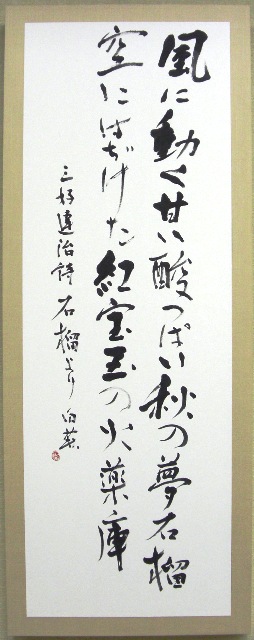 風に動く甘い酸つぱい秋の夢石榴
空にはぢけた紅宝玉の火薬庫
三好達治詩 石榴より